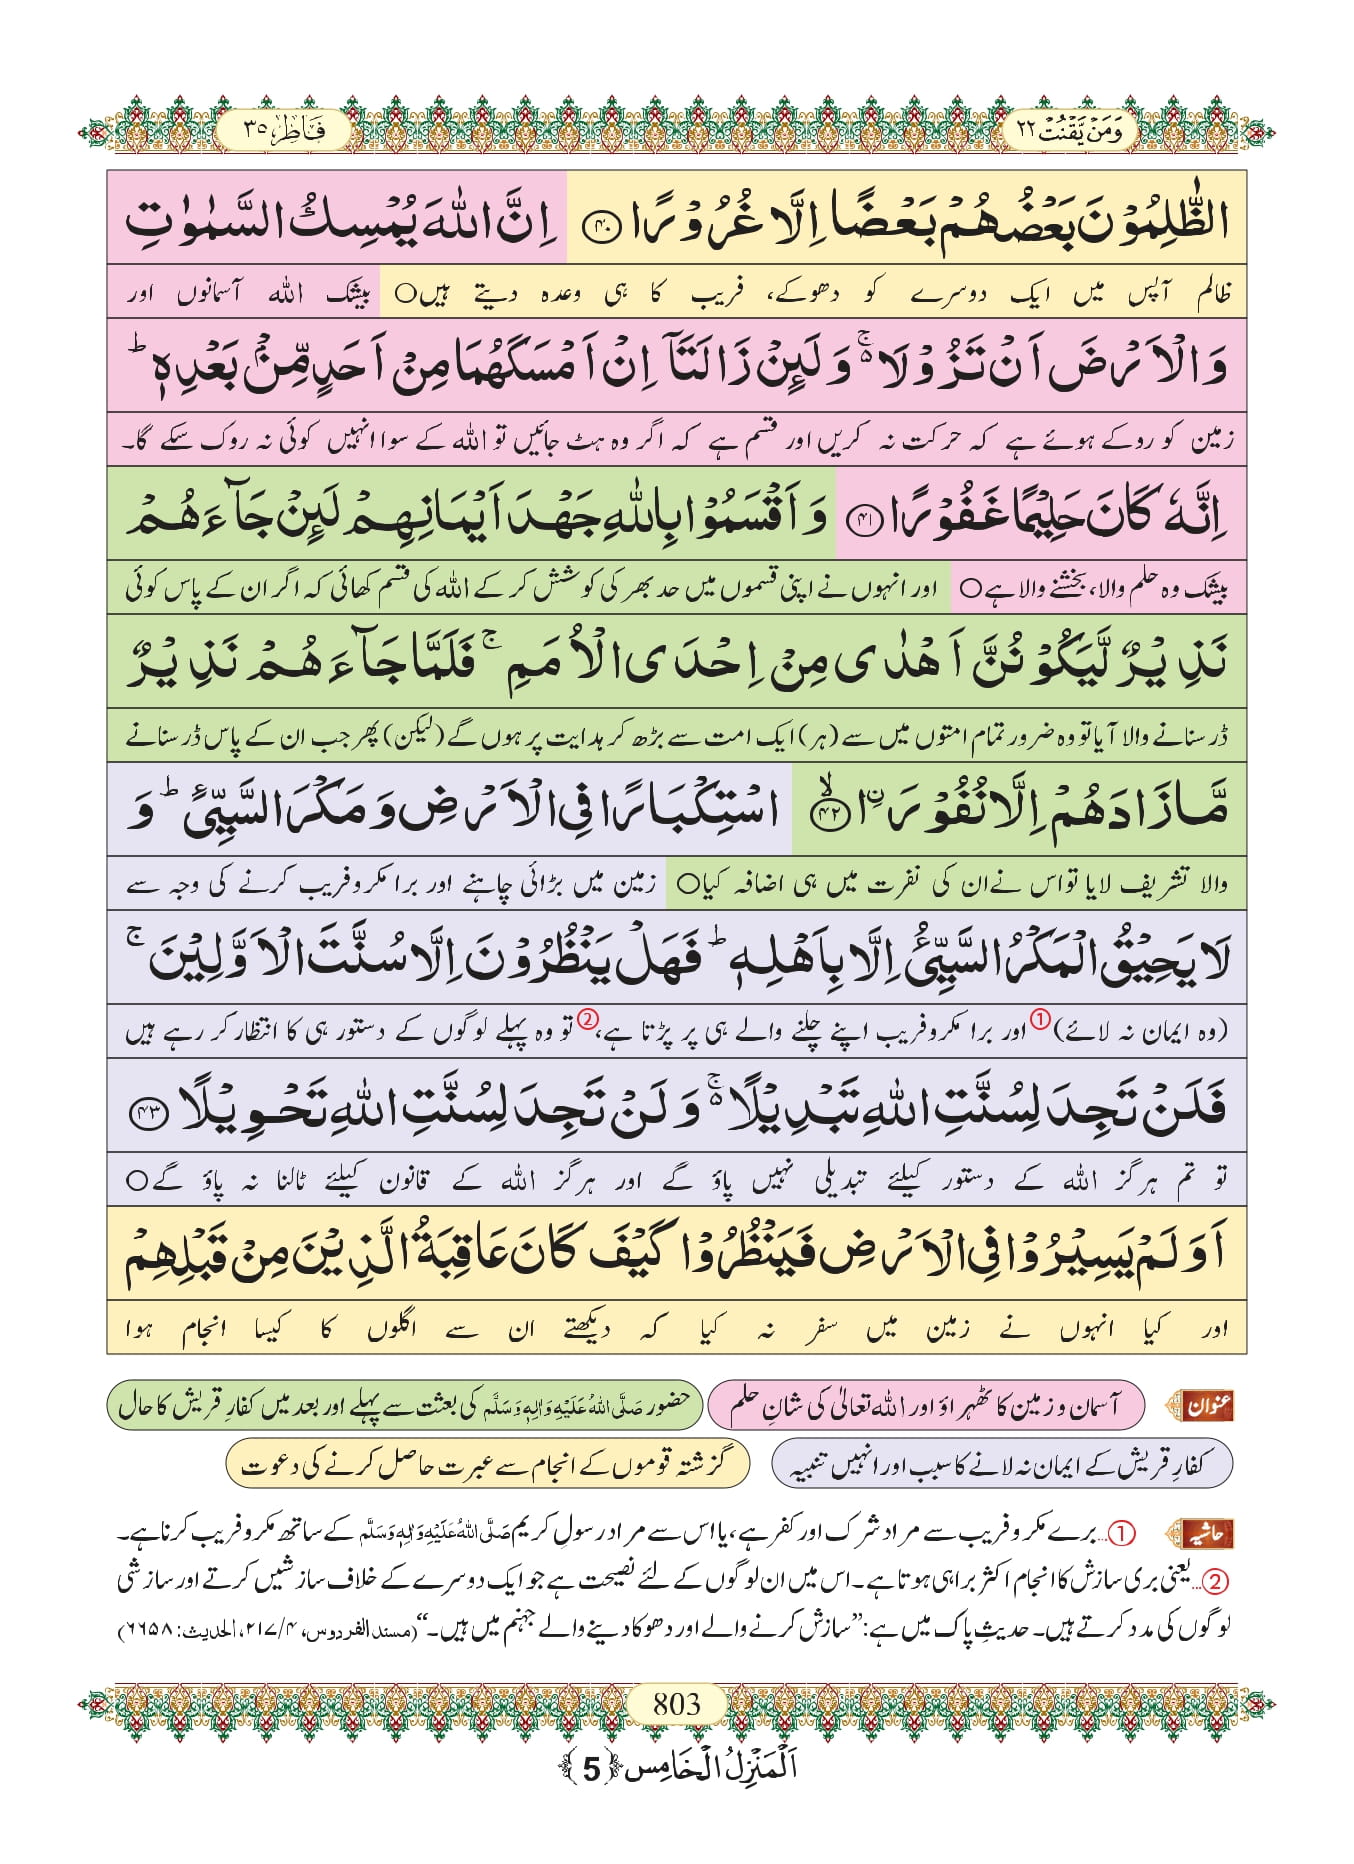 وَمَنْ يَّقْنُتْ ٢٢
فَاطِر ٣٥
الظّٰلِمُوْنَ بَعْضُهُمْ بَعْضًا اِلَّا غُرُوْرًا ﴿۴۰﴾ اِنَّ اللّٰهَ يُمْسِكُ السَّمٰوٰتِ
ظالم آپس میں ایک دوسرے کو دھوکے، فریب کا ہی وعدہ دیتے ہیں○ بیشک اللہ آسمانوں اور
وَالْاَرْضَ اَنْ تَزُوْلَا ۚ۬ وَلَىِٕنْ زَالَتَاۤ اِنْ اَمْسَكَهُمَا مِنْ اَحَدٍ مِّنْۢ بَعْدِهٖ ؕ
زمین کو روکے ہوئے ہے کہ حرکت نہ کریں اور قسم ہے کہ اگر وہ ہٹ جائیں تو اللہ کے سوا انہیں کوئی نہ روک سکے گا۔
اِنَّهٗ كَانَ حَلِيْمًا غَفُوْرًا ﴿۴۱﴾ وَ اَقْسَمُوْا بِاللّٰهِ جَهْدَ اَيْمَانِهِمْ لَىِٕنْ جَآءَهُمْ
بیشک وہ حلم والا، بخشنے والا ہے○ اور انہوں نے اپنی قسموں میں حد بھر کی کوشش کر کے اللہ کی قسم کھائی کہ اگر ان کے پاس کوئی
نَذِيْرٌ لَّيَكُوْنُنَّ اَهْدٰى مِنْ اِحْدَى الْاُمَمِ ۚ فَلَمَّا جَآءَهُمْ نَذِيْرٌ
ڈر سنانے والا آیا تو وہ ضرور تمام امتوں میں سے (ہر) ایک امت سے بڑھ کر ہدایت پر ہوں گے (لیکن) پھر جب ان کے پاس ڈر سنانے
مَّا زَادَهُمْ اِلَّا نُفُوْرَاۨ ﴿۴۲﴾ۙ اسْتِكْبَارًا فِی الْاَرْضِ وَ مَكْرَ السَّیِّئِ ؕ وَ
والا تشریف لایا تو اس نے ان کی نفرت میں ہی اضافہ کیا○ زمین میں بڑائی چاہنے اور برا مکر و فریب کرنے کی وجہ سے
لَا يَحِيْقُ الْمَكْرُ السَّیِّئُ اِلَّا بِاَهْلِهٖ ؕ فَهَلْ يَنْظُرُوْنَ اِلَّا سُنَّتَ الْاَوَّلِيْنَ ۚ
(وہ ایمان نہ لائے)① اور برا مکر و فریب اپنے چلنے والے ہی پر پڑتا ہے،② تو وہ پہلے لوگوں کے دستور ہی کا انتظار کر رہے ہیں
فَلَنْ تَجِدَ لِسُنَّتِ اللّٰهِ تَبْدِيْلًا ۚ۬ وَلَنْ تَجِدَ لِسُنَّتِ اللّٰهِ تَحْوِيْلًا ﴿۴۳﴾
تو تم ہرگز اللہ کے دستور کیلئے تبدیلی نہیں پاؤ گے اور ہرگز اللہ کے قانون کیلئے ٹالنا نہ پاؤ گے○
اَوَلَمْ يَسِيْرُوْا فِی الْاَرْضِ فَيَنْظُرُوْا كَيْفَ كَانَ عَاقِبَةُ الَّذِيْنَ مِنْ قَبْلِهِمْ
اور کیا انہوں نے زمین میں سفر نہ کیا کہ دیکھتے ان سے اگلوں کا کیسا انجام ہوا
عنوان آسمان و زمین کا ٹھہراؤ اور اللہ تعالیٰ کی شانِ حلم حضور صَلَّی اللہُ عَلَیْہِ وَاٰلِہٖ وَسَلَّم کی بعثت سے پہلے اور بعد میں کفارِ قریش کا حال
کفارِ قریش کے ایمان نہ لانے کا سبب اور انہیں تنبیہ گزشتہ قوموں کے انجام سے عبرت حاصل کرنے کی دعوت
حاشیہ ①...برے مکر و فریب سے مراد شرک اور کفر ہے، یا اس سے مراد رسولِ کریم صَلَّی اللہُ عَلَیْہِ وَاٰلِہٖ وَسَلَّم کے ساتھ مکر و فریب کرنا ہے۔
②...یعنی بری سازش کا انجام اکثر برا ہی ہوتا ہے۔ اس میں ان لوگوں کے لئے نصیحت ہے جو ایک دوسرے کے خلاف سازشیں کرتے اور سازشی
لوگوں کی مدد کرتے ہیں۔ حدیثِ پاک میں ہے: ”سازش کرنے والے اور دھوکا دینے والے جہنم میں ہیں۔“ (مسند الفردوس، ۴/۲۱۷، الحدیث: ۶۶۵۸)
803
اَلْمَنْزِلُ الْخَامِس ﴿5﴾